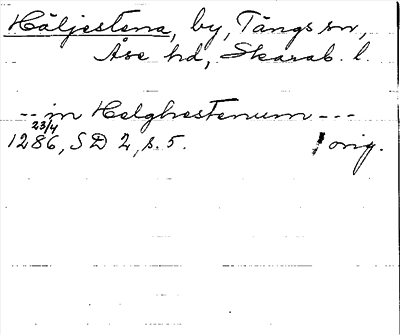 Häljestena, by, Tängs sn,
Åse hd, Skarab. l.
-- in Helghestenum ---
23/4
1286, SD 2, s. 5. orig.